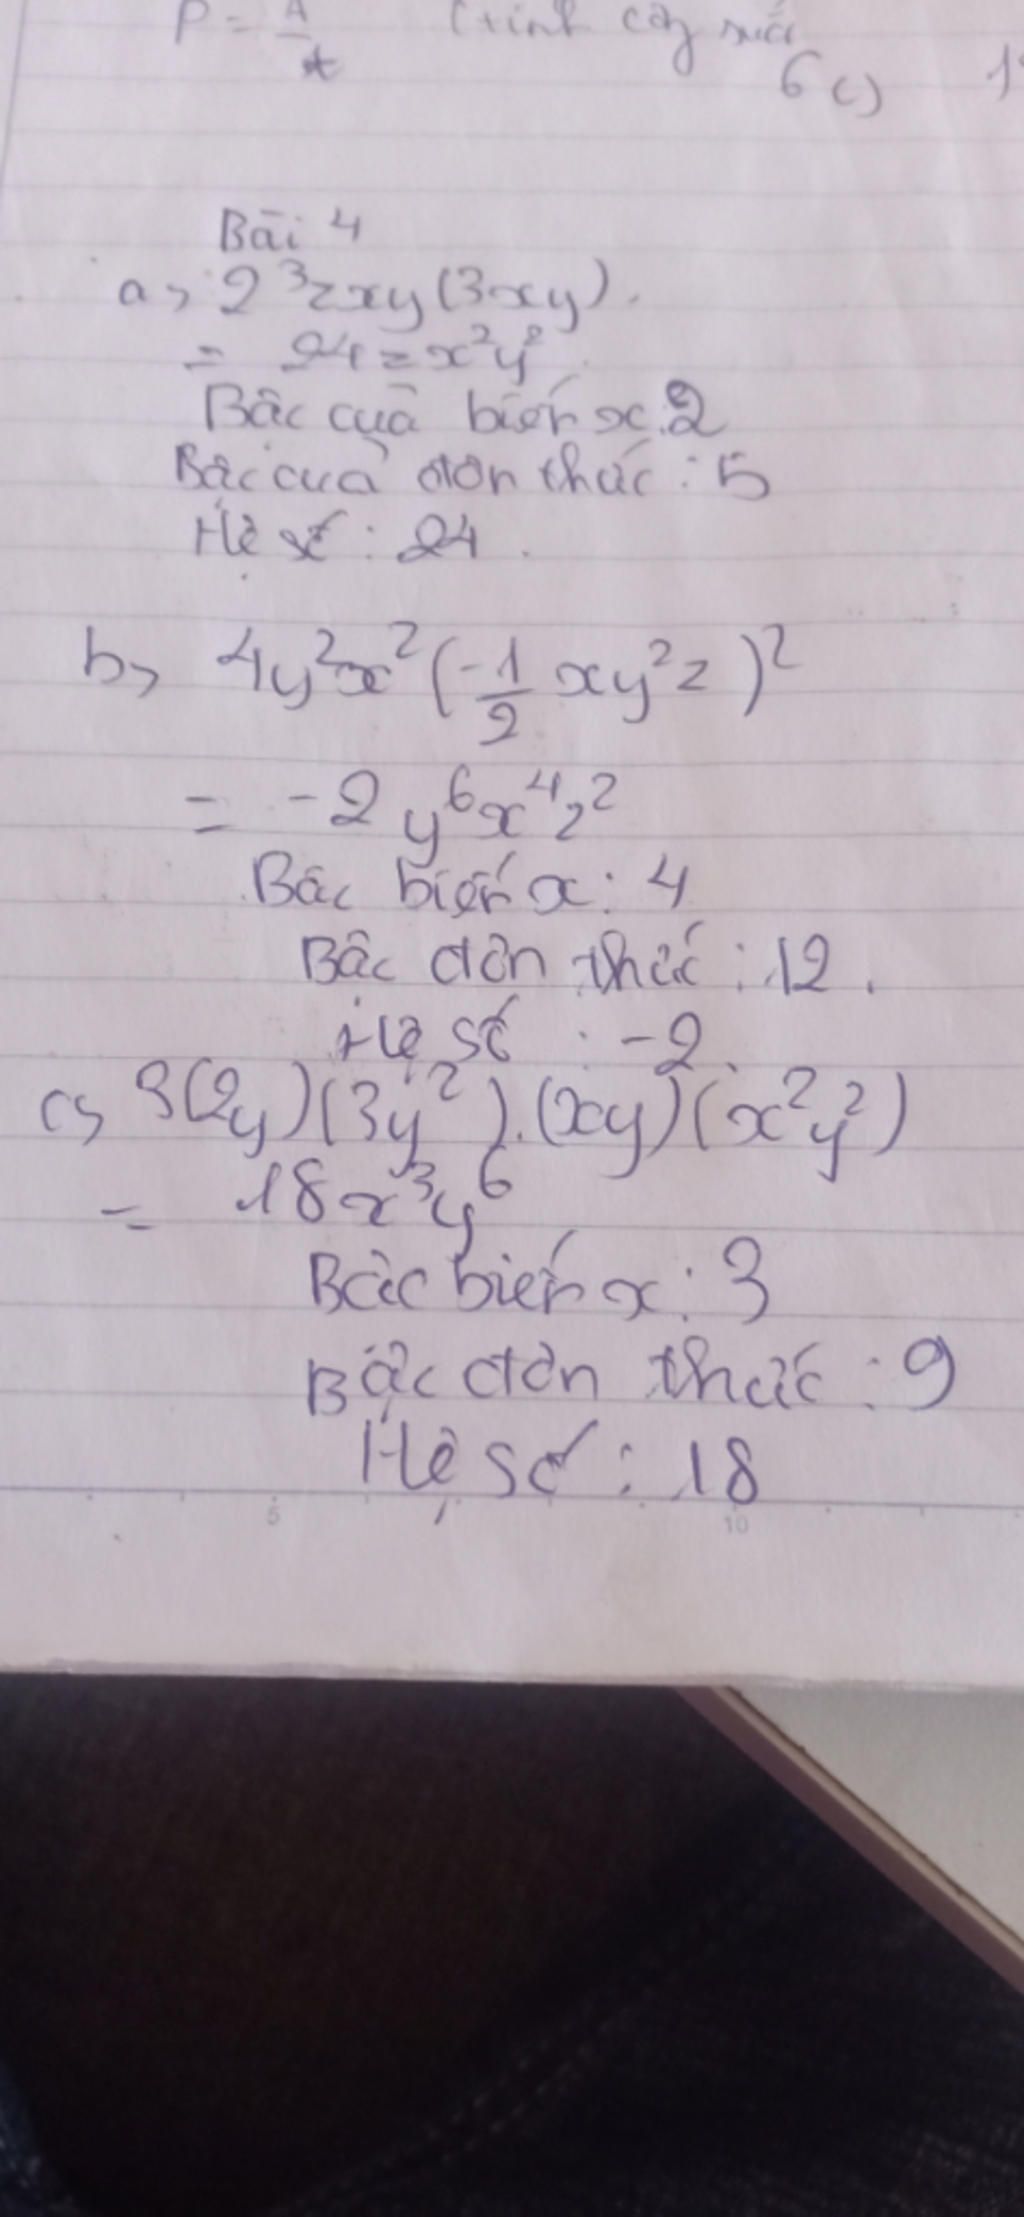 P = A/t (tính công suất
6 c)
Bài 4
a, 2³zxy(3xy).
= 24zx²y²
Bậc của biến x: 2
Bậc của đơn thức : 5
Hệ số : 24.
b, 4y²x²(-1/2 xy²z)²
= -2y⁶x⁴z²
Bậc biến x: 4
Bậc đơn thức : 12.
Hệ số : -2.
c, 3(2y)(3y²).(xy)(x²y²)
= 18x³y⁶
Bậc biến x: 3
Bậc đơn thức : 9
Hệ số : 18
5 10